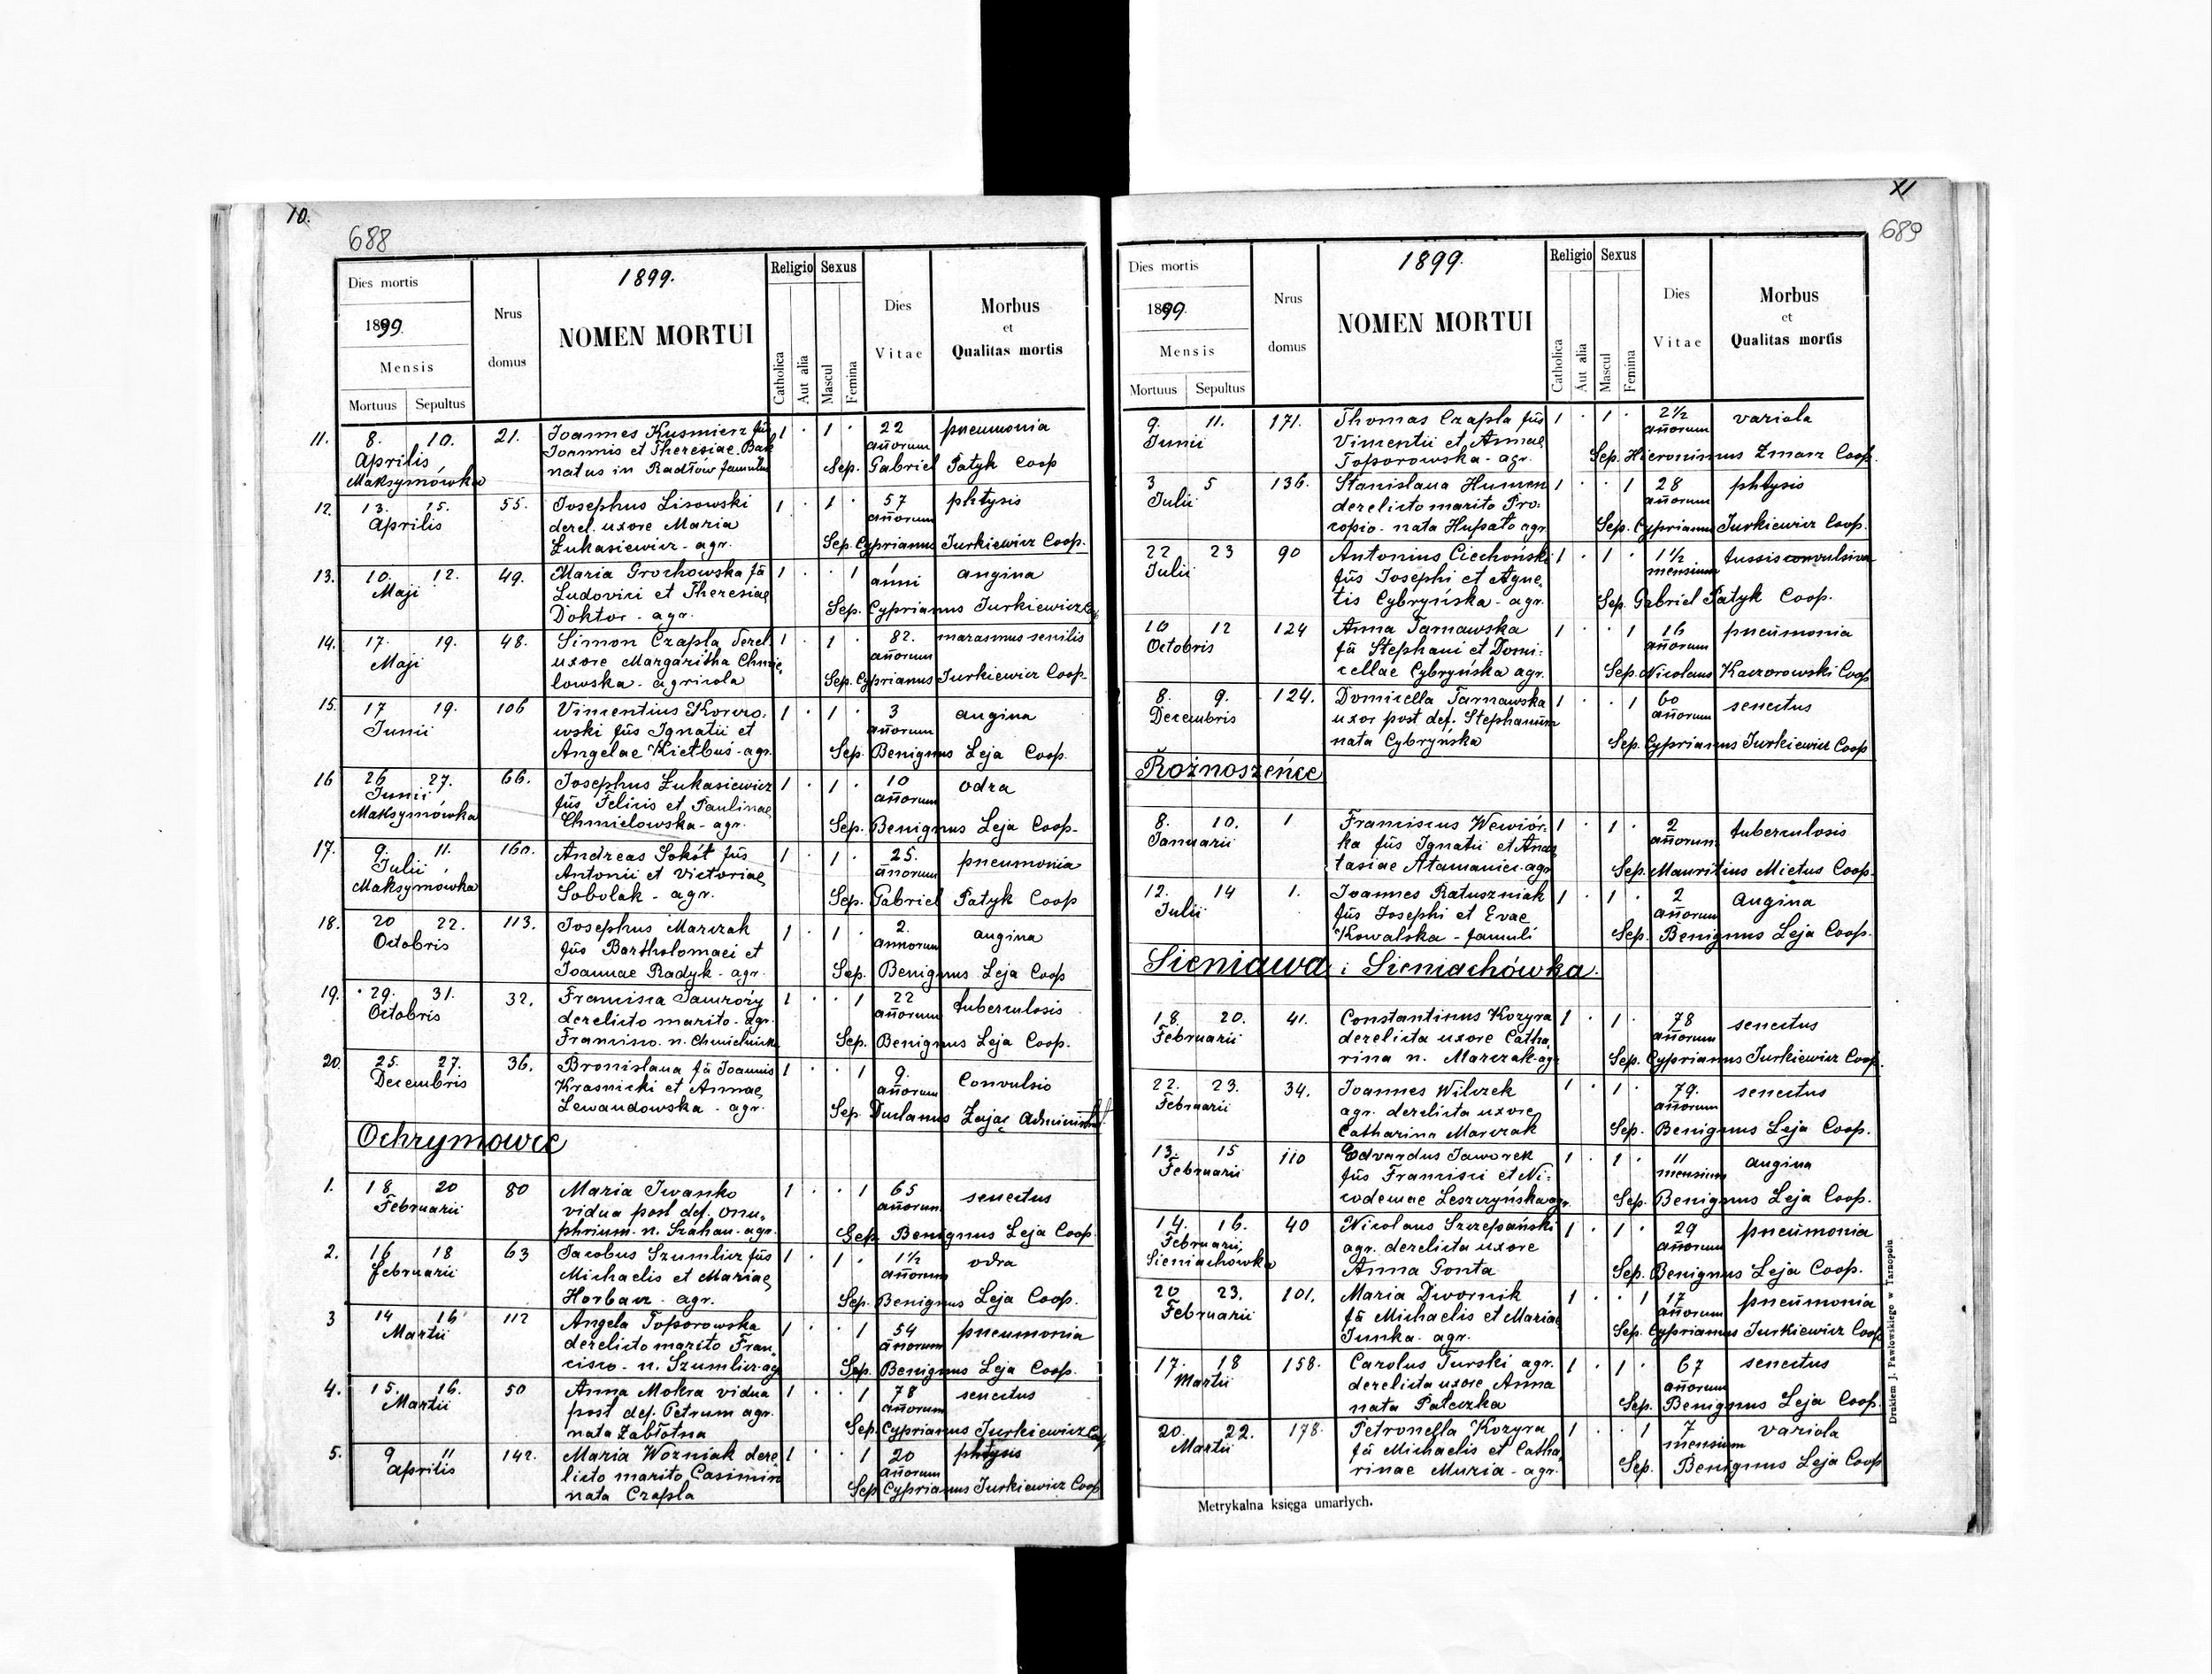 10.
688
Dies mortis
1899.
Mensis
Mortuus Sepultus
Nrus
domus
1899.
NOMEN MORTUI
Religio
Catholica
Aut alia
Sexus
Mascul
Femina
Dies
Vitae
Morbus
et
Qualitas mortis
11. 8. 10. 21. Joannes Kusmierz fūs 1 . 1 . 22 pneumonia
Aprilis Joannis et Theresiae Bak añorum
Maksymówka natus in Radłów famulus Sep. Gabriel Patyk Coop
12. 13. 15. 55. Josephus Lisowski 1 . 1 . 57 phtysis
Aprilis derel. uxore Maria añorum
Łukasiewicz - agr. Sep. Cyprianus Jurkiewicz Coop.
13. 10. 12. 49. Maria Grochowska fā 1 . . 1 1 angina
Maji Ludovici et Theresiae anni
Doktor - agr. Sep. Cyprianus Jurkiewicz
14. 17. 19. 48. Simon Czapla derel. 1 . 1 . 82. marasmus senilis
Maji uxore Margaritha Chmie, añorum
lowska - agricola Sep. Cyprianus Jurkiewicz Coop.
15. 17 19. 106 Vincentius 1 . 1 . 3 angina
Junii wski fūs Ignatii et añorum
Angelae Kiełbus - agr. Sep. Benignus Leja Coop.
16 26 27. 66. Josephus Łukasiewicz 1 . 1 . 10 odra
Junii fūs Felicis et Paulinae añorum
Maksymówka Chmielowska - agr. Sep. Benignus Leja Coop.
17. 9. 11. 160. Andreas Sokół fūs 1 . 1 25. pneumonia
Julii Antonii et Victoriae añorum
Maksymówka Sobolak - agr. Sep. Gabriel Patyk Coop
18. 20 22. 113. Josephus Marczak 1 . 1 . 2. angina
Octobris fūs Bartholomaei et annorum
Joannae Radyk - agr. Sep. Benignus Leja Coop
19. 29. 31. 32. Francisca 1 . . 1 22 tuberculosis
Octobris derelicto marito - agr. añorum
Francisco. n. Sep. Benignus Leja Coop.
20. 25. 27. 36. Bronislaua fā Joannis 1 . . 1 9. Convulsio
Decembris Krasnicki et Annae añorum
Lewandowska - agr. Sep. Zając
Ochrymowce
1. 18 20 80 Maria Iwanko 1 . . 1 65 senectus
Februarii vidua post def. Onu, añorum
phrium. n. agr. Sep. Benignus Leja Coop.
2. 16 18 63 Jacobus Szumlicz fūs 1 . 1 . 1½ odra
februarii Michaelis et Mariae añorum
Horbacz - agr. Sep. Benignus Leja Coop.
3 14 16 112 Angela Toporowska 1 . . 1 54 pneumonia
Martii derelicto marito Fran, añorum
cisco - n. Szumlicz - agr Sep. Benignus Leja Coop.
4. 15. 16. 50 Anna Mokra vidua 1 . . 1 78 senectus
Martii post def. Petrum agr. añorum
nata Zabłotna Sep. Cyprianus Jurkiewicz
5. 9 11 142. Maria Woźniak dere, 1 . . 1 20 phtysis
Aprilis licto marito Casimiro añorum
nata Czapla Sep. Cyprianus Jurkiewicz Coop
XI
689
Dies mortis
1899.
Mensis
Mortuus Sepultus
Nrus
domus
1899.
NOMEN MORTUI
Religio
Catholica
Aut alia
Sexus
Mascul
Femina
Dies
Vitae
Morbus
et
Qualitas mortis
9. 11. 171. Thomas Czapla fūs 1 . 1 . 2½ variola
Junii Vincentii et Annae añorum
Toporowska - agr. Sep. Hieronimus Zmarz Coop.
3 5 136. Stanislaua Humen 1 . . 1 28 phtysis
Julii derelicto marito Pro- añorum
copio - nata Hupało agr. Sep. Cyprianus Jurkiewicz Coop.
22 23 90 Antonius Ciechoński 1 . 1 . 1½ tussis convulsiva
Julii fūs Josephi et Agne, mensium
tis Cybryńska - agr. Sep. Gabriel Patyk Coop.
10 12 124 Anna Tarnawska 1 . . 1 16 pneumonia
Octobris fā Stephani et Domi- añorum
cellae Cybryńska agr. Sep. Nicolaus Kaczorowski Coop
8. 9. 124. Domicella Tarnawska 1 . . 1 60 senectus
Decembris uxor post def. Stephanum añorum
nata Cybryńska Sep. Cyprianus Jurkiewicz Coop
Rożnoszeńce
8. 10. 1 Franciscus Wewiór- 1 . 1 . 2 tuberculosis
Januarii ka fūs Ignatii et Anas, añorum
tasiae Atamaniec - agr Sep. Mauritius Miętus Coop.
12. 14 1. Joannes Ratuszniak 1 . 1 . 2 angina
Julii fūs Josephi et Evae añorum
Kowalska - famuli Sep. Benignus Leja Coop.
Sieniawa i Sieniachówka.
18. 20. 41. Constantinus Kozyra 1 . 1 . 78 senectus
Februarii derelicta uxore Catha, añorum
rina n. Marczak - agr Sep. Cyprianus Jurkiewicz Coop.
22. 23. 34. Joannes Wilczek 1 . 1 . 79. senectus
Februarii agr. derelicta uxore añorum
Catharina Marczak Sep. Benignus Leja Coop.
13. 15 110 Edvardus Jaworek 1 . 1 . 11 angina
Februarii fūs Francisci et Ni- mensium
codemae Leszczyńska agr. Sep. Benignus Leja Coop.
14. 16. 40 Nicolaus Szczepański 1 . 1 . 29 pneumonia
Februarii, agr. derelicta uxore añorum
Sieniachówka Anna Gonta Sep. Benignus Leja Coop.
20 23. 101. Maria Dwornik 1 . . 1 17 pneumonia
Februarii fā Michaelis et Mariae añorum
Junka - agr. Sep. Cyprianus Jurkiewicz Coop
17. 18 158. Carolus Turski agr. 1 . 1 . 67 senectus
Martii derelicta uxore Anna añorum
nata Pałczka Sep. Benignus Leja Coop.
20. 22. 178. Petronella Kozyra 1 . . 1 7 variola
Martii fā Michaelis et Catha, mensium
rinae Muzia - agr. Sep. Benignus Leja Coop
Metrykalna księga umarłych.
Drukiem J. Pawłowskiego w Tarnopolu